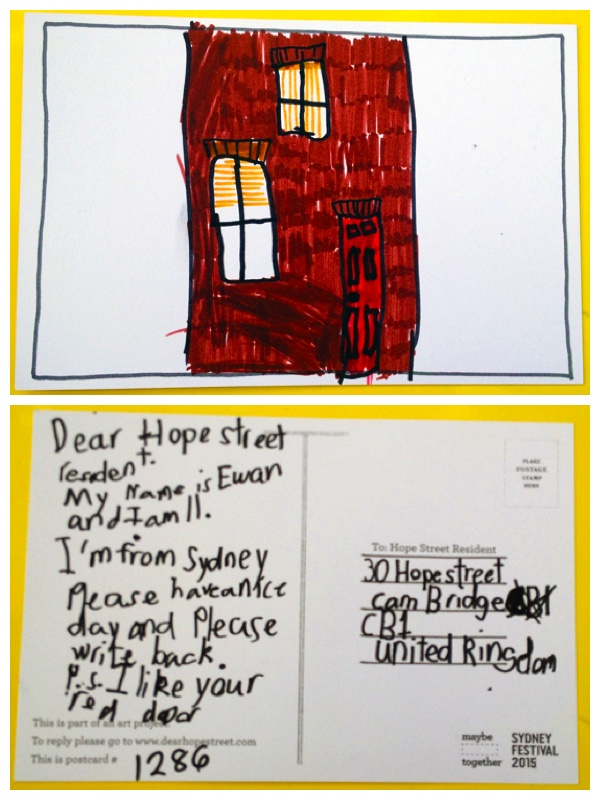 Dear Hope street
resident.
My Name is Ewan
and I am 11.
I'm from Sydney
Please have a nice
day and Please
write back.
P.S. I like your
red door
This is part of an art project.
To reply please go to www.dearhopestreet.com
This is postcard # 1286
PLACE
POSTAGE
STAMP
HERE
To: Hope Street Resident
30 Hope street
cam Bridge
CB1
united Kingdom
maybe
together
SYDNEY
FESTIVAL
2015